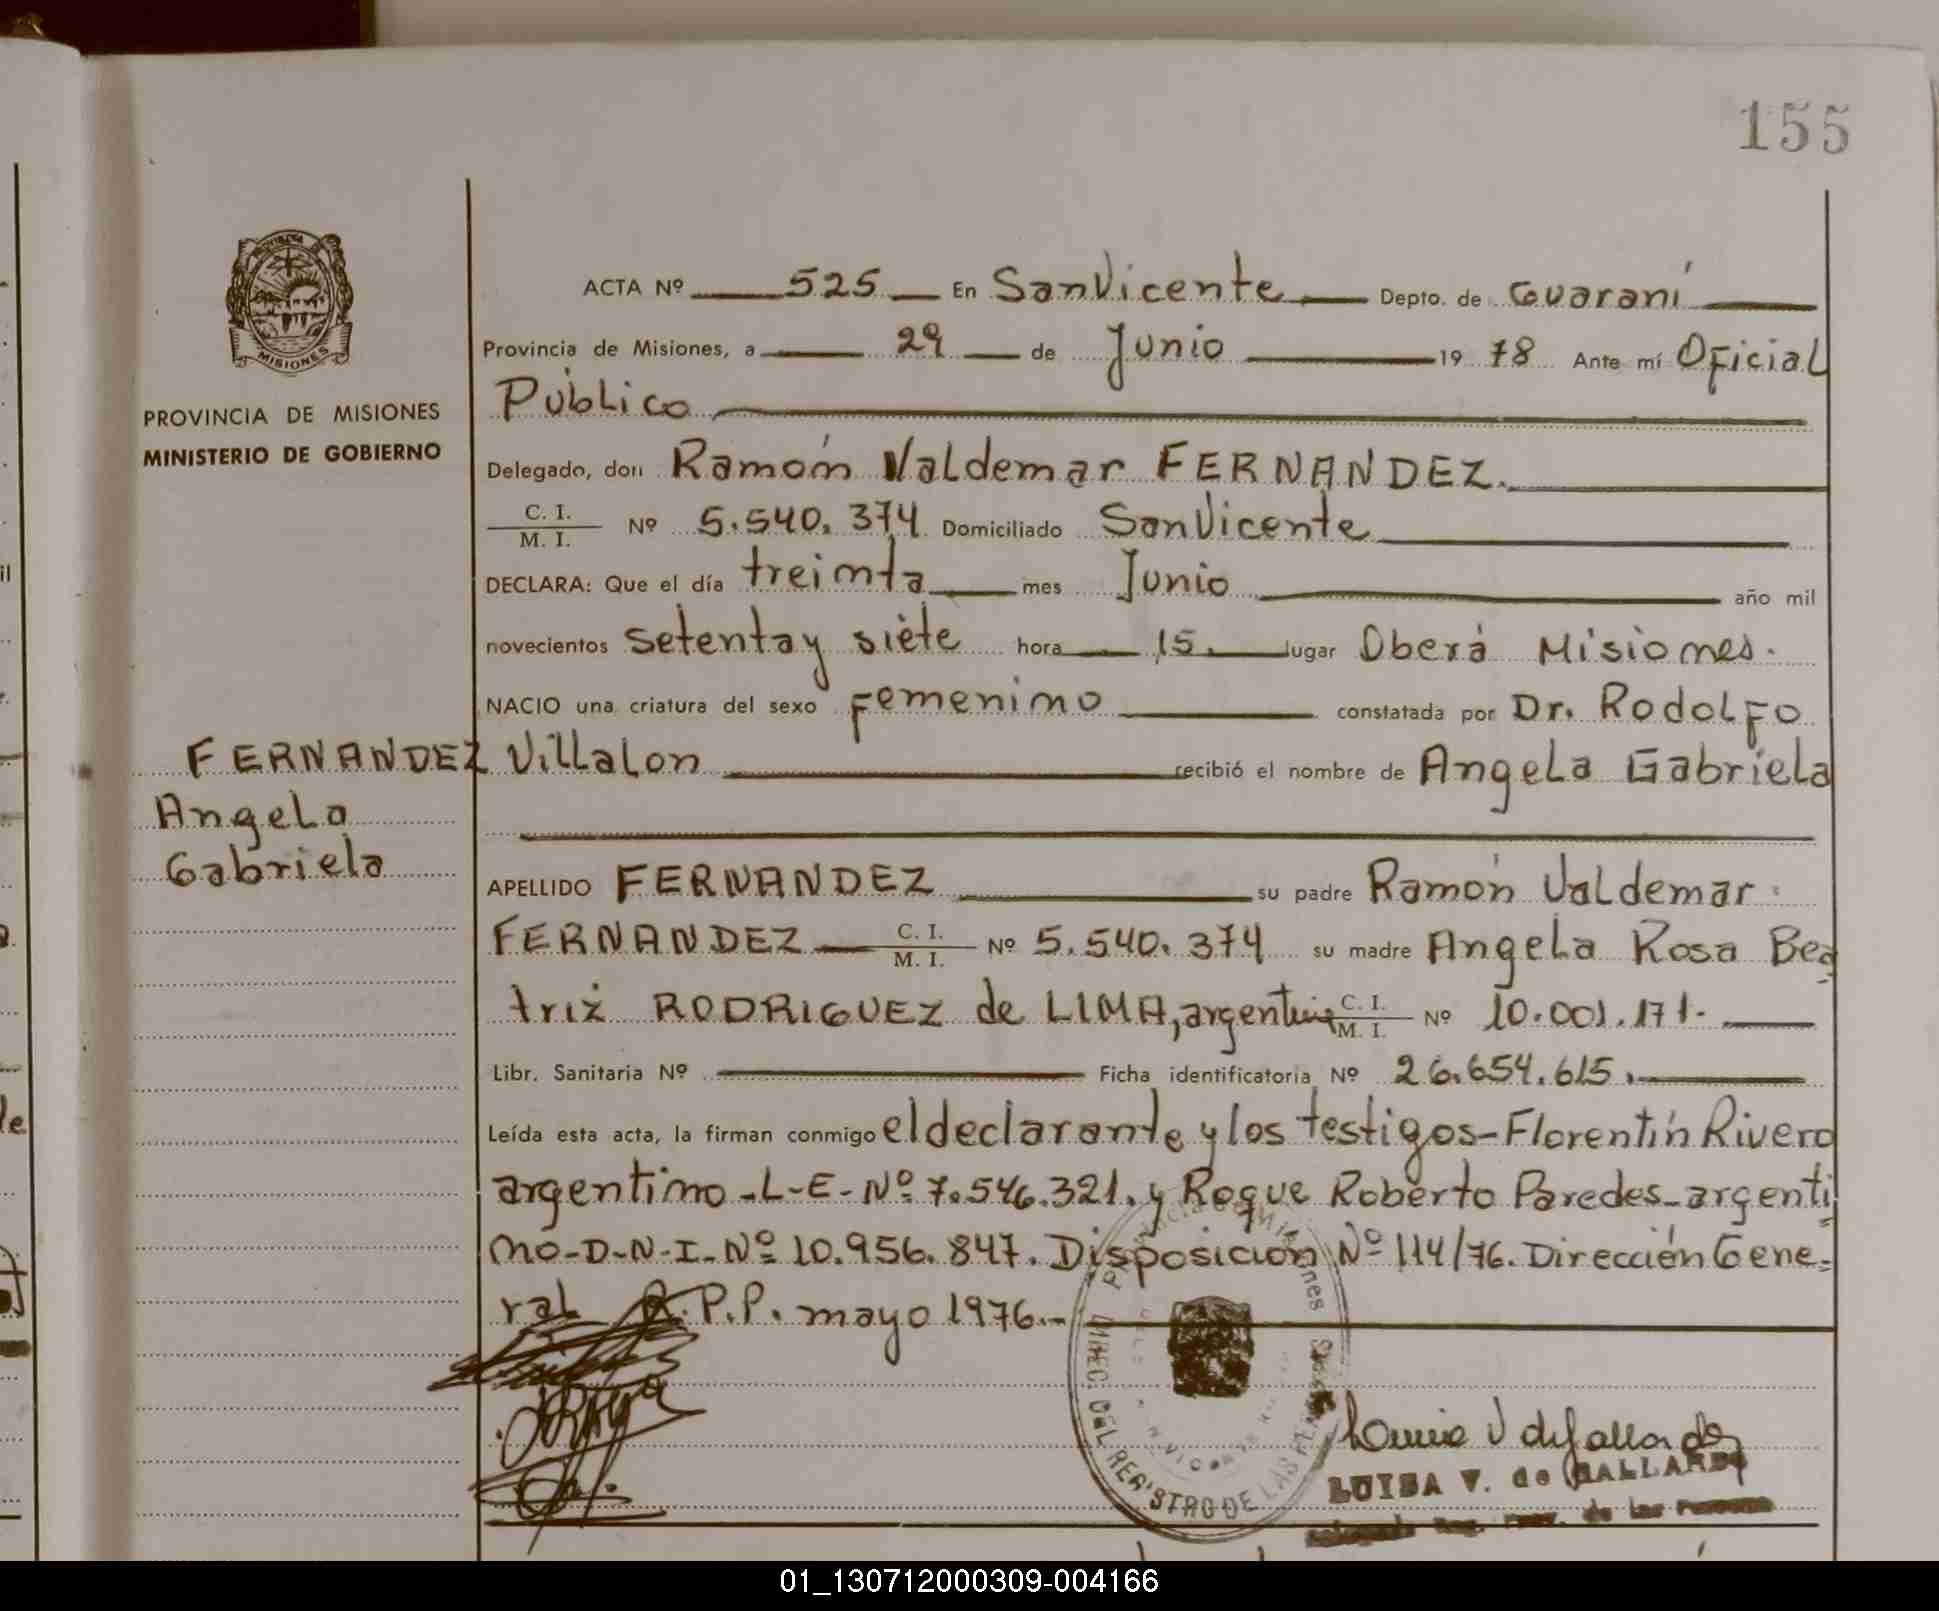 155
ACTA Nº 525 En San Vicente Depto. de Guaraní
Provincia de Misiones, a 29 de Junio 19 78 Ante mí Oficial
Público
PROVINCIA DE MISIONES
MINISTERIO DE GOBIERNO
MISIONES
Delegado, don Ramón Valdemar FERNANDEZ.
C. I.
M. I.
Nº 5.540.374 Domiciliado San Vicente
DECLARA: Que el día treinta mes Junio año mil
novecientos setenta y siete hora 15. lugar Oberá Misiones.
NACIO una criatura del sexo femenino constatada por Dr. Rodolfo
Villalon recibió el nombre de Angela Gabriela
FERNANDEZ
Angela
Gabriela
APELLIDO FERNANDEZ su padre Ramón Valdemar
FERNANDEZ C. I. M. I. Nº 5.540.374 su madre Angela Rosa Bea
triz RODRIGUEZ de LIMA, argentina C. I. M. I. Nº 10.001.171.
Libr. Sanitaria Nº Ficha identificatoria Nº 26.654.615.
Leída esta acta, la firman conmigo el declarante y los testigos-Florentín Rivero
argentino-L-E-Nº 7.546.321. y Roque Roberto Paredes-argenti
no-D-N-I-Nº 10.956.847. Disposición Nº 114/76. Dirección Gene=
ral R.P.P. mayo 1976.-
Provincia de Misiones
DIREC. DEL REGISTRO DE LAS
LUISA V. de GALLARDO
de las Personas
01_130712000309-004166